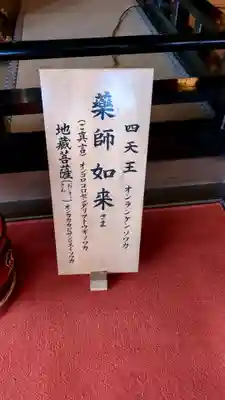 四天王 オンランケンソワカ
薬師如来さま
(ご真言) オンコロコロセンダリマトウギソワカ
地蔵菩薩 オンカカカビサンマエイソワカ